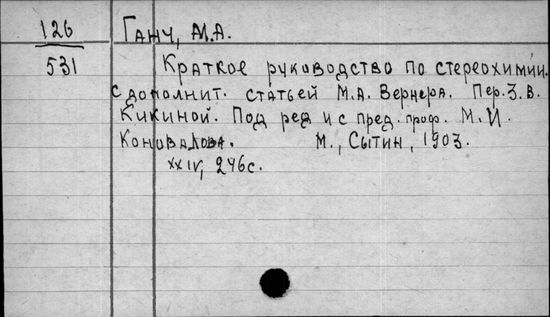 126 Ганч, М.А.
531 Краткое руководство по стереохимии.
С дополнит. статьей М.А. Вернера. Пер. З.В.
Кикиной. Под ред и с пред. проф. М.И.
Коновалова. М., Сытин, 1903.
XXIV, 246с.